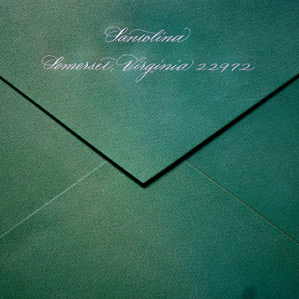 Santolina
Somerset, Virginia 22972